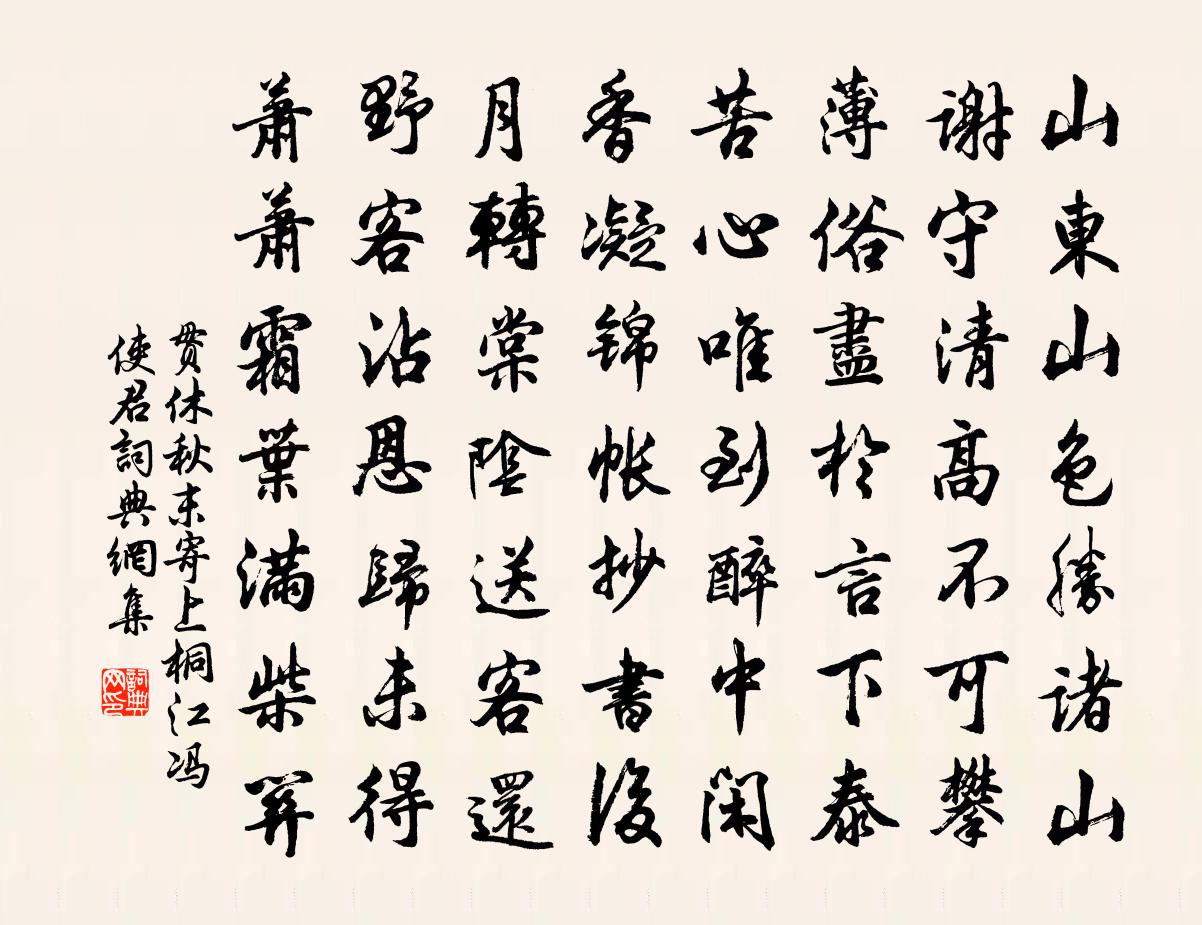 山東山色勝諸山
謝守清高不可攀
薄俗盡於言下泰
苦心唯到醉中閑
香凝錦帳抄書後
月轉棠陰送客還
野客沾恩歸未得
蕭蕭霜葉滿柴關
貫休秋末寄上桐江冯
使君詞典網集
詞典
网印